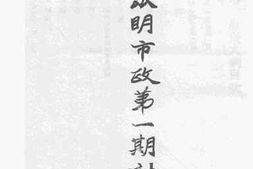 明市政第一期